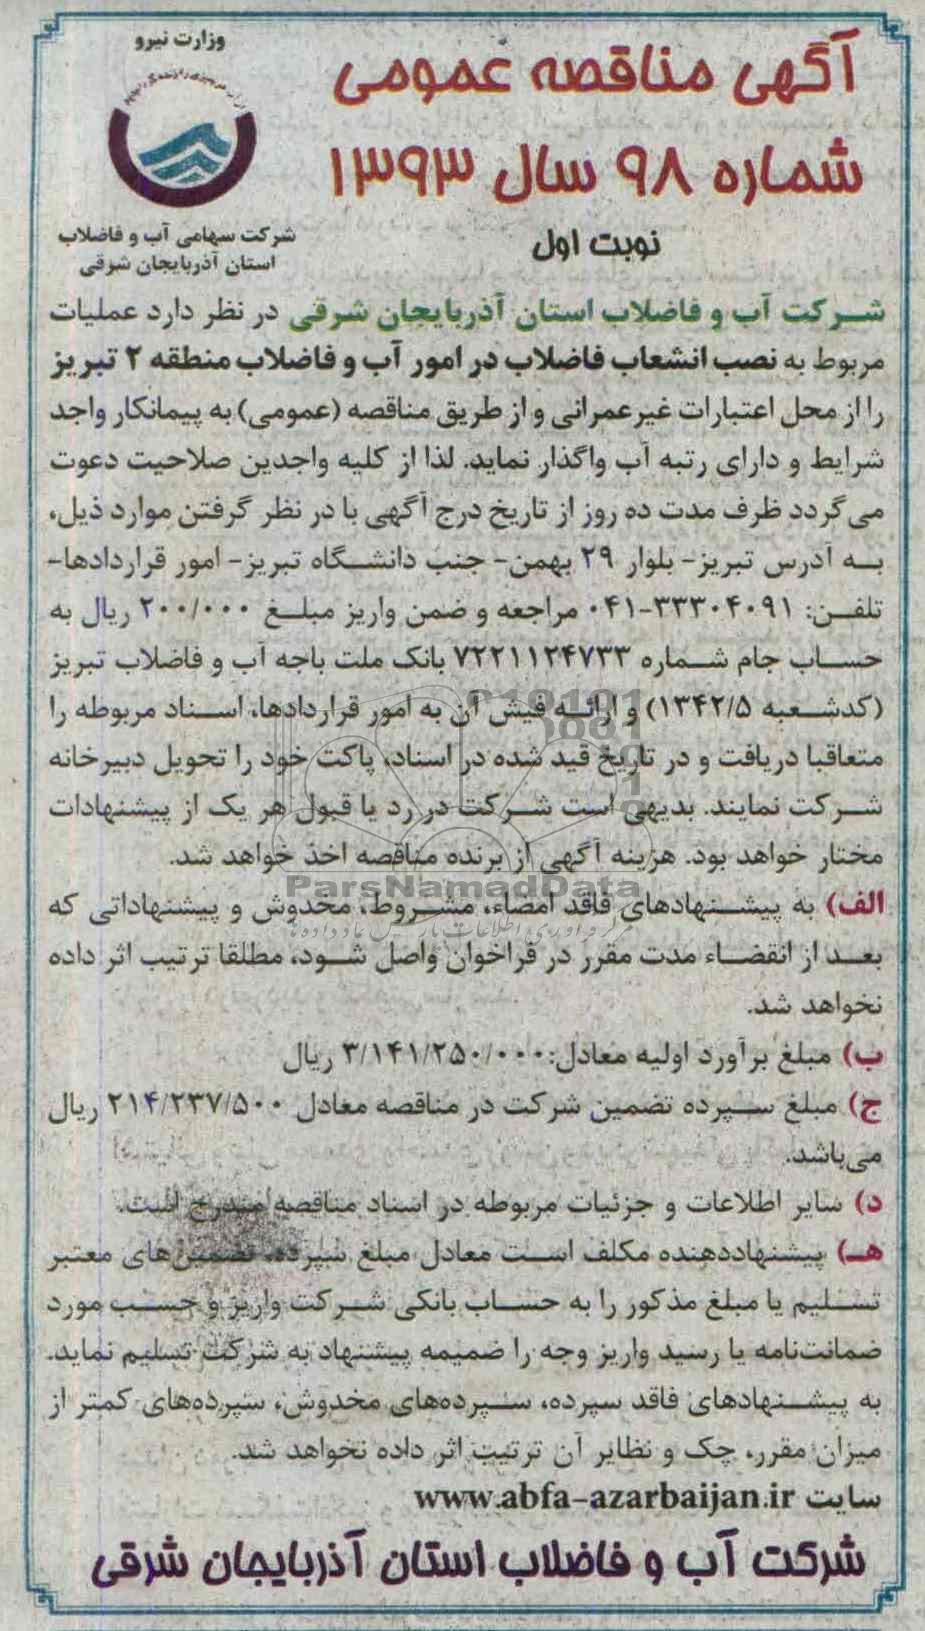 وزارت نیرو
شرکت سهامی آب و فاضلاب
استان آذربایجان شرقی
آگهی مناقصه عمومی
شماره ۹۸ سال ۱۳۹۳
نوبت اول
شرکت آب و فاضلاب استان آذربایجان شرقی در نظر دارد عملیات
مربوط به نصب انشعاب فاضلاب در امور آب و فاضلاب منطقه ۲ تبریز
را از محل اعتبارات غیرعمرانی و از طریق مناقصه (عمومی) به پیمانکار واجد
شرایط و دارای رتبه آب واگذار نماید. لذا از کلیه واجدین صلاحیت دعوت
می‌گردد ظرف مدت ده روز از تاریخ درج آگهی با در نظر گرفتن موارد ذیل،
به آدرس تبریز- بلوار ۲۹ بهمن- جنب دانشگاه تبریز- امور قراردادها-
تلفن: ۳۳۳۰۴۰۹۱-۰۴۱ مراجعه و ضمن واریز مبلغ ۲۰۰/۰۰۰ ریال به
حساب جام شماره ۷۲۲۱۱۲۴۷۳۳ بانک ملت باجه آب و فاضلاب تبریز
(کدشعبه ۱۳۴۲/۵) و ارائه فیش آن به امور قراردادها، اسناد مربوطه را
متعاقبا دریافت و در تاریخ قید شده در اسناد، پاکت خود را تحویل دبیرخانه
شرکت نمایند. بدیهی است شرکت در رد یا قبول هر یک از پیشنهادات
مختار خواهد بود. هزینه آگهی از برنده مناقصه اخذ خواهد شد.
ParsNamadData
الف) به پیشنهادهای فاقد امضاء، مشروط، مخدوش و پیشنهاداتی که
بعد از انقضاء مدت مقرر در فراخوان واصل شود، مطلقا ترتیب اثر داده
نخواهد شد.
ب) مبلغ برآورد اولیه معادل: ۳/۱۴۱/۲۵۰/۰۰۰ ریال
ج) مبلغ سپرده تضمین شرکت در مناقصه معادل ۲۱۴/۲۳۷/۵۰۰ ریال
می‌باشد.
د) سایر اطلاعات و جزئیات مربوطه در اسناد مناقصه مندرج است.
هـ) پیشنهاددهنده مکلف است معادل مبلغ سپرده، تضمین‌های معتبر
تسلیم یا مبلغ مذکور را به حساب بانکی شرکت واریز و حسب مورد
ضمانت‌نامه یا رسید واریز وجه را ضمیمه پیشنهاد به شرکت تسلیم نماید.
به پیشنهادهای فاقد سپرده، سپرده‌های مخدوش، سپرده‌های کمتر از
میزان مقرر، چک و نظایر آن ترتیب اثر داده نخواهد شد.
سایت www.abfa-azarbaijan.ir
شرکت آب و فاضلاب استان آذربایجان شرقی